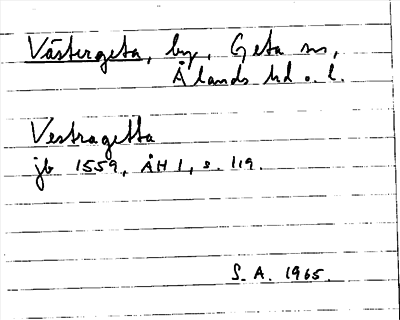 Västergeta, by, Geta sn,
Ålands hd o. l.
Vestragetta
jb 1559, ÅH 1, s. 119.
S. A. 1965.